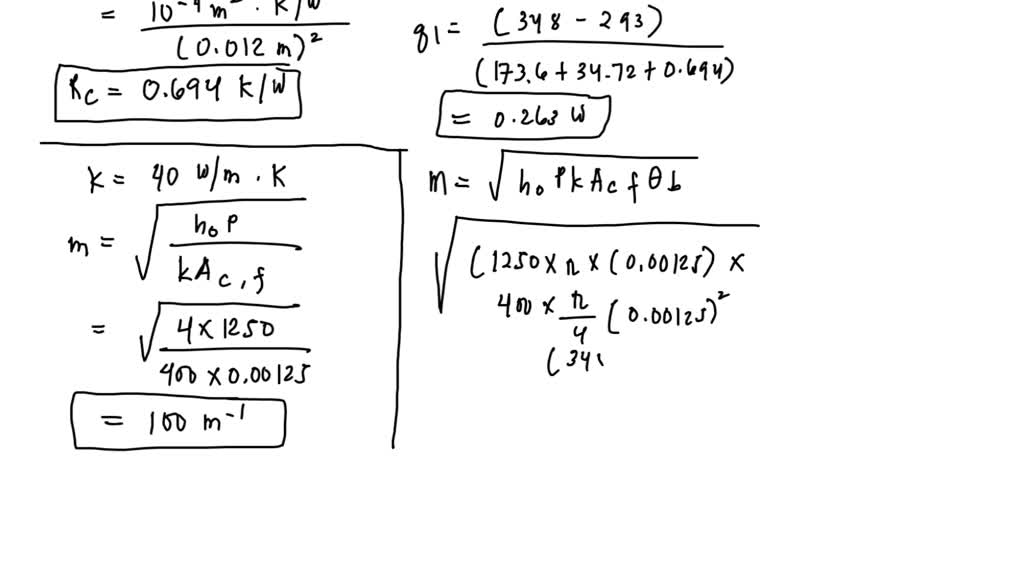 = 10⁻⁴ m² · K/W / (0.012 m)²
Rc = 0.694 K/W
q1 = (348 - 293) / (173.6 + 34.72 + 0.694)
= 0.263 W
K = 40 W/m · K
m = √ hoP / kAc,f
= √ 4 x 1250 / 400 x 0.00125
= 100 m⁻¹
M = √ hoPkAcf θb
√ (1250 x π x (0.00125) x
400 x π/4 (0.00125)²
(34